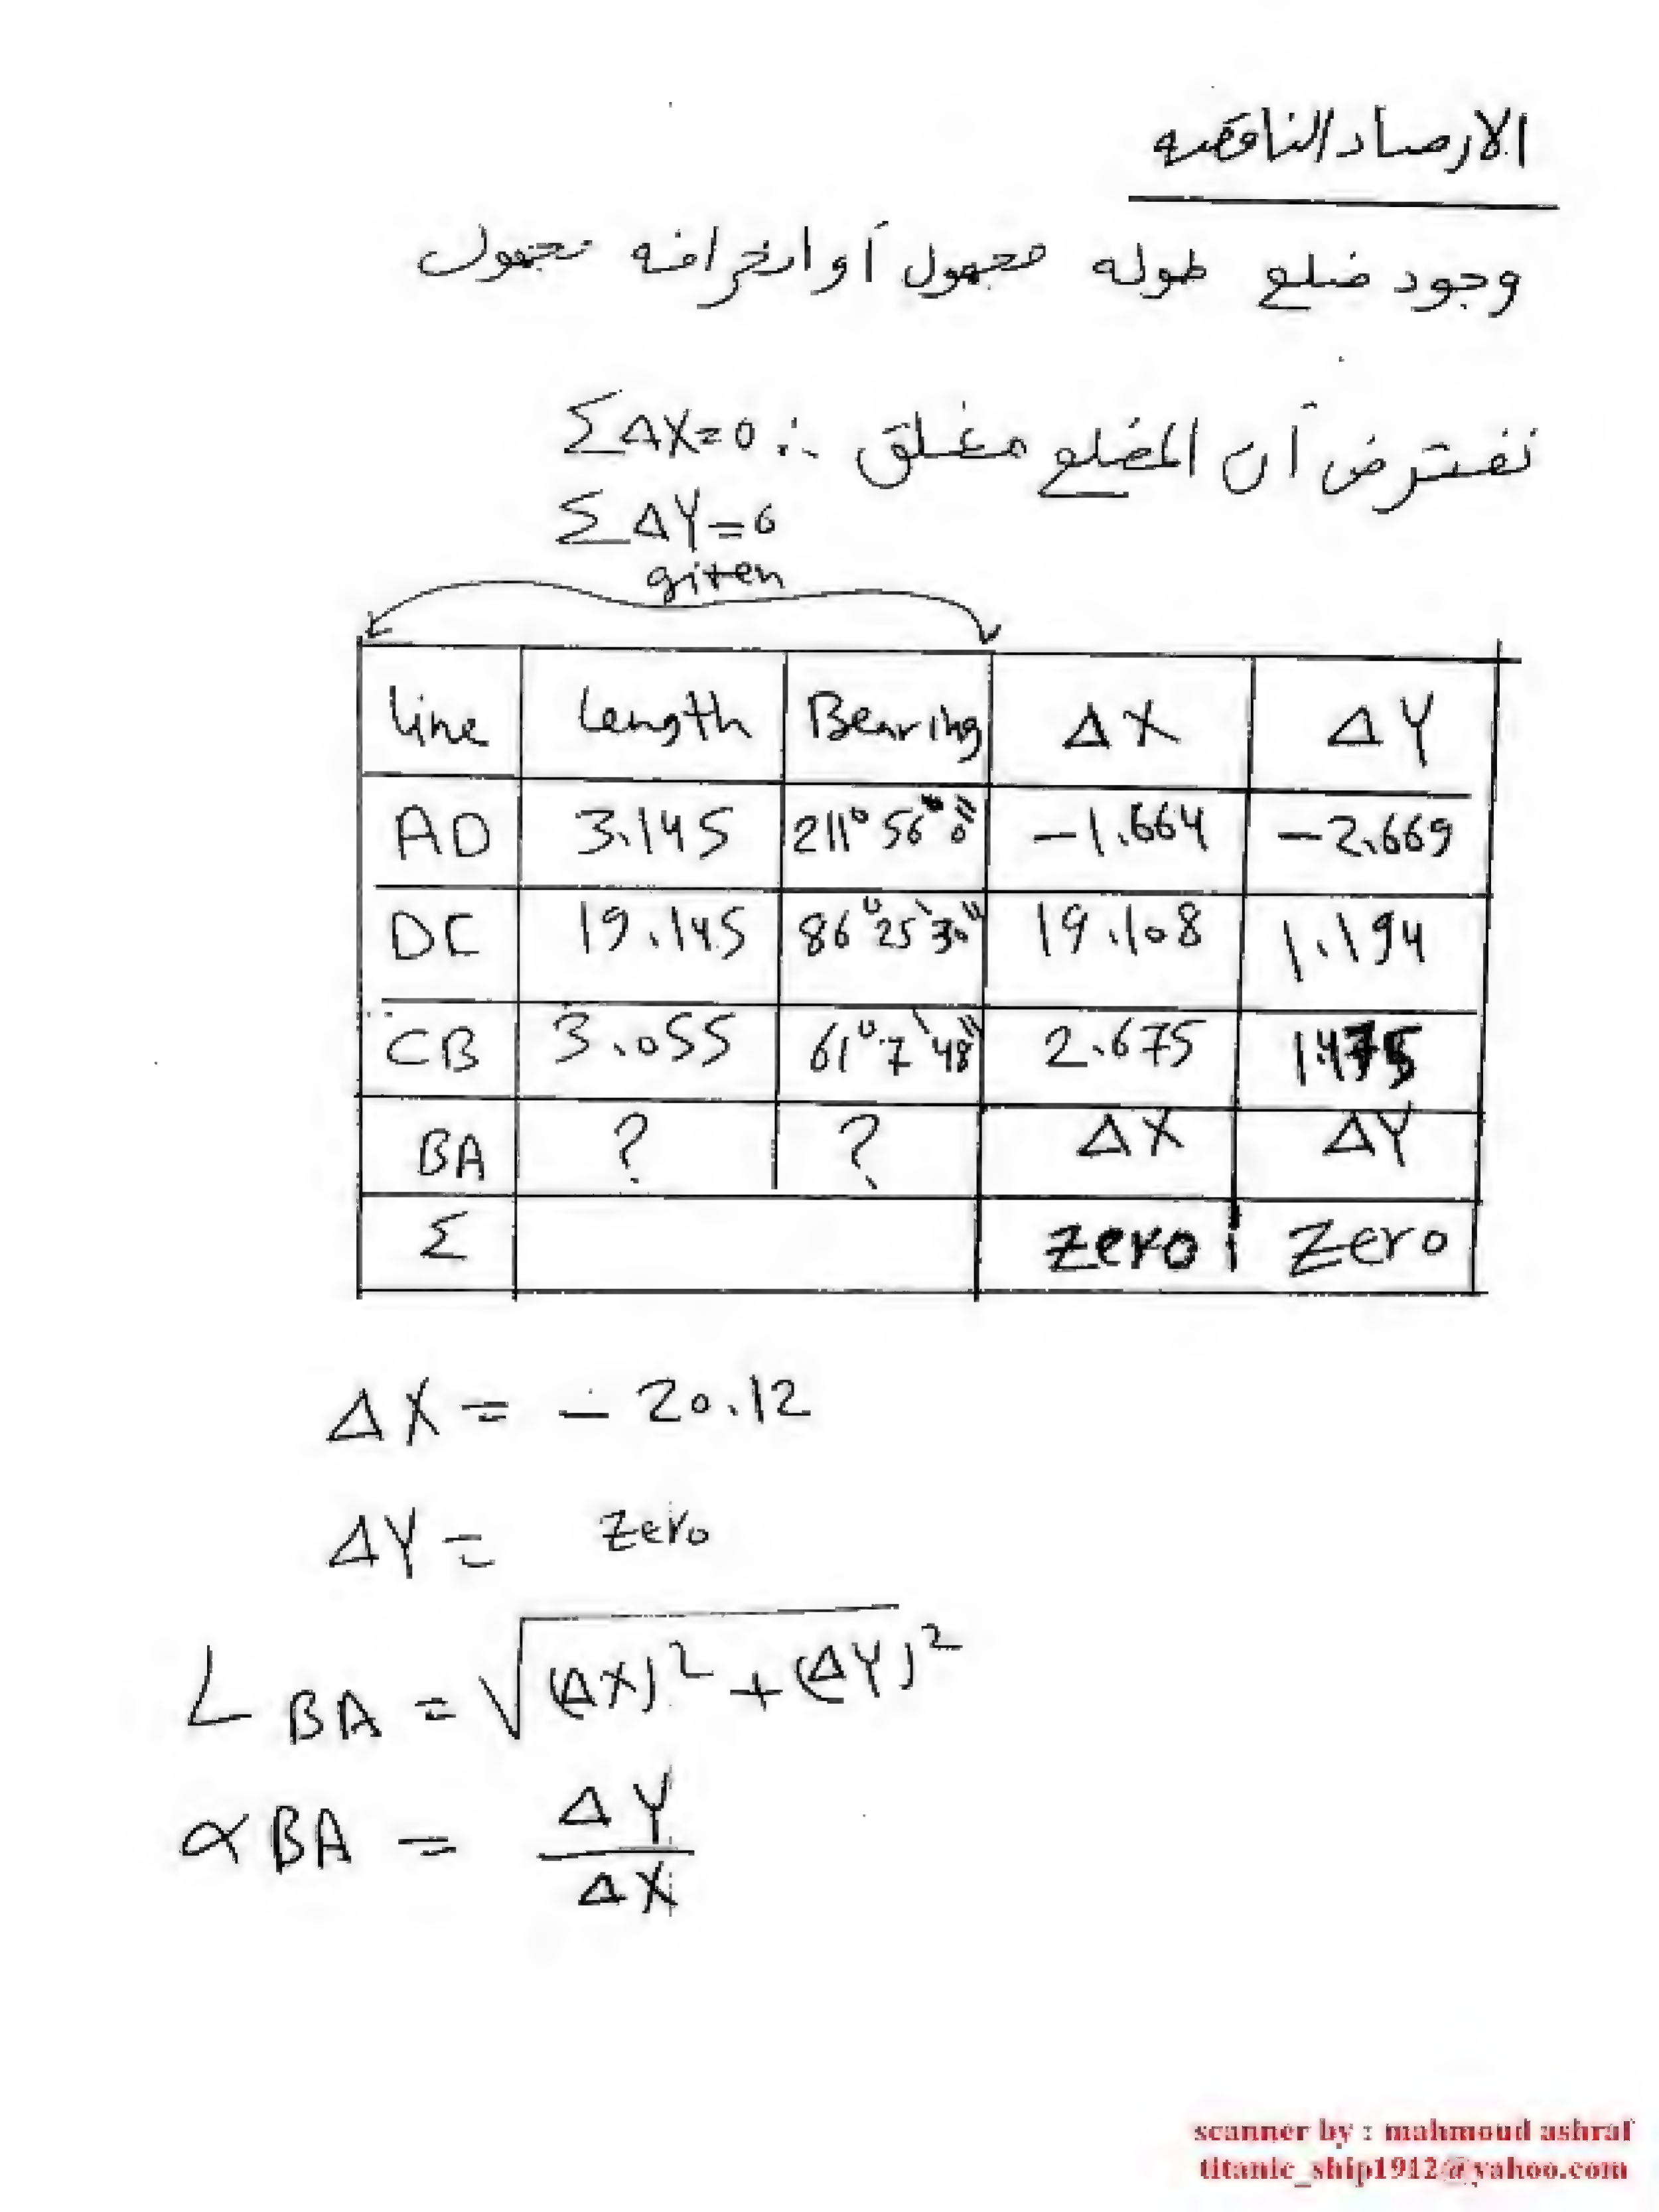 الارصاد الناقصه
وجود ضلع طوله مجهول أو انحرافه مجهول
نفترض أن المضلع مغلق ∴ ΣΔX=0
ΣΔY=0
given
Line Length Bearing ΔX ΔY
AD 3.145 211° 56' 0" -1.664 -2.669
DC 19.145 86° 25' 30" 19.108 1.194
CB 3.055 61° 7' 48" 2.675 1.475
BA ? ? ΔX ΔY
Σ zero zero
ΔX = - 20.12
ΔY = zero
L BA = √(ΔX)² + (ΔY)²
α BA = ΔY / ΔX
scanner by : mahmoud ashraf
titanic_ship1912@yahoo.com